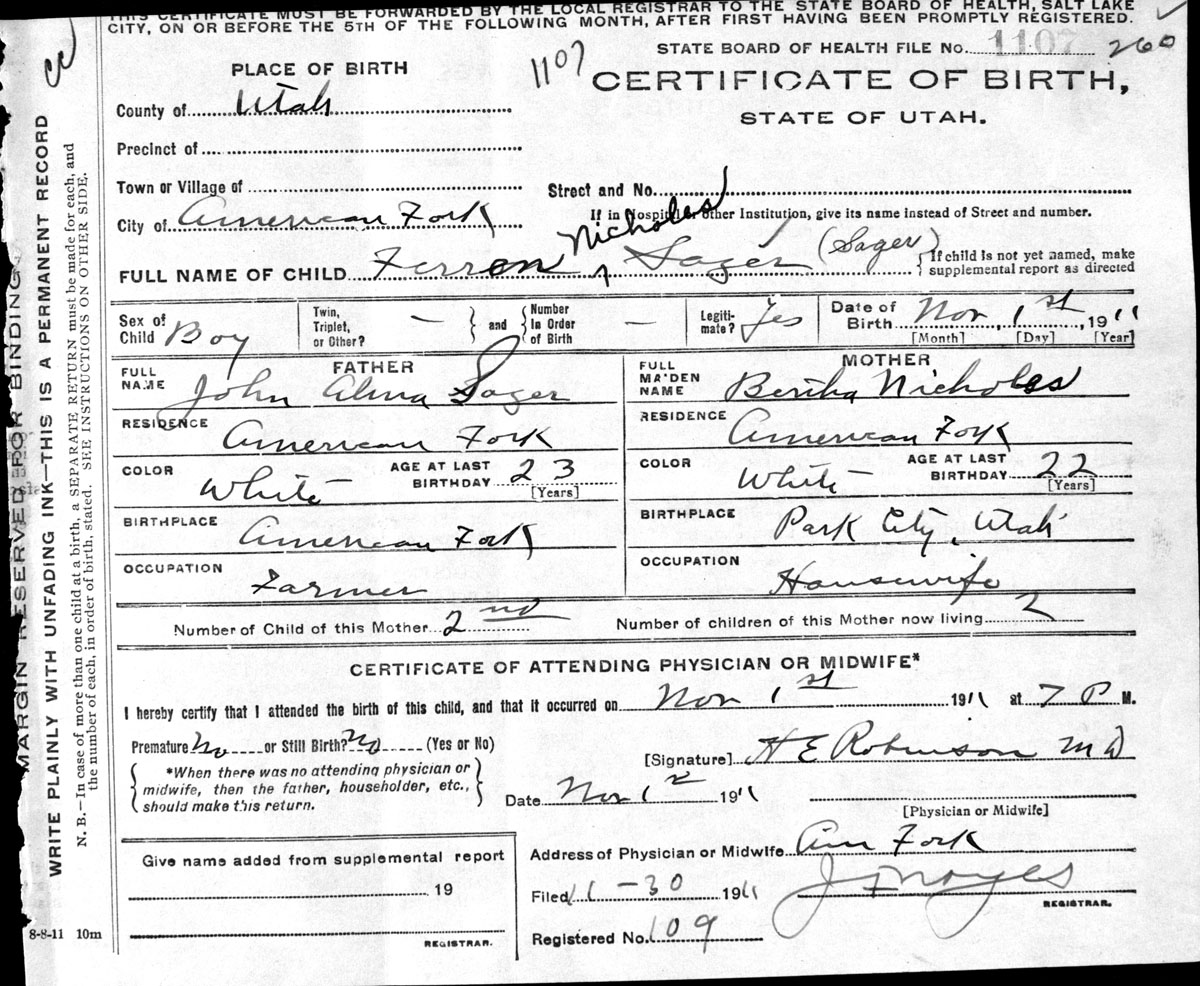 THIS CERTIFICATE MUST BE FORWARDED BY THE LOCAL REGISTRAR TO THE STATE BOARD OF HEALTH, SALT LAKE
CITY, ON OR BEFORE THE 5TH OF THE FOLLOWING MONTH, AFTER FIRST HAVING BEEN PROMPTLY REGISTERED.
STATE BOARD OF HEALTH FILE NO. 1107 260
PLACE OF BIRTH
1107
CERTIFICATE OF BIRTH,
STATE OF UTAH.
County of Utah
Precinct of
Town or Village of
Street and No.
City of American Fork
If in Hospital or other Institution, give its name instead of Street and number.
FULL NAME OF CHILD Ferron Nicholes Sager (Sager)
If child is not yet named, make
supplemental report as directed
Sex of
Child Boy
Twin,
Triplet,
or Other? —
and
Number
In Order
of Birth —
Legiti-
mate? Yes
Date of
Birth Nov, 1st, 1911
[Month] [Day] [Year]
FATHER
FULL
NAME John Alma Sager
RESIDENCE American Fork
COLOR White
AGE AT LAST
BIRTHDAY 23
[Years]
BIRTHPLACE American Fork
OCCUPATION Farmer
MOTHER
FULL
MA'DEN
NAME Bertha Nicholes
RESIDENCE American Fork
COLOR White
AGE AT LAST
BIRTHDAY 22
[Years]
BIRTHPLACE Park City, Utah
OCCUPATION Housewife
Number of Child of this Mother 2nd
Number of children of this Mother now living 2
CERTIFICATE OF ATTENDING PHYSICIAN OR MIDWIFE*
I hereby certify that I attended the birth of this child, and that it occurred on Nov 1st 1911 at 7 P M.
Premature No or Still Birth? No (Yes or No)
*When there was no attending physician or
midwife, then the father, householder, etc.,
should make this return.
[Signature] H E Robinson M D
Date Nov 1911
[Physician or Midwife]
Give name added from supplemental report
19
REGISTRAR.
Address of Physician or Midwife Am Fork
Filed 11-30 1911
REGISTRAR.
Registered No. 109
8-8-11 10m
MARGIN RESERVED FOR BINDING
WRITE PLAINLY WITH UNFADING INK—THIS IS A PERMANENT RECORD
N. B.—In case of more than one child at a birth, a SEPARATE RETURN must be made for each, and
the number of each, in order of birth, stated. SEE INSTRUCTIONS ON OTHER SIDE.